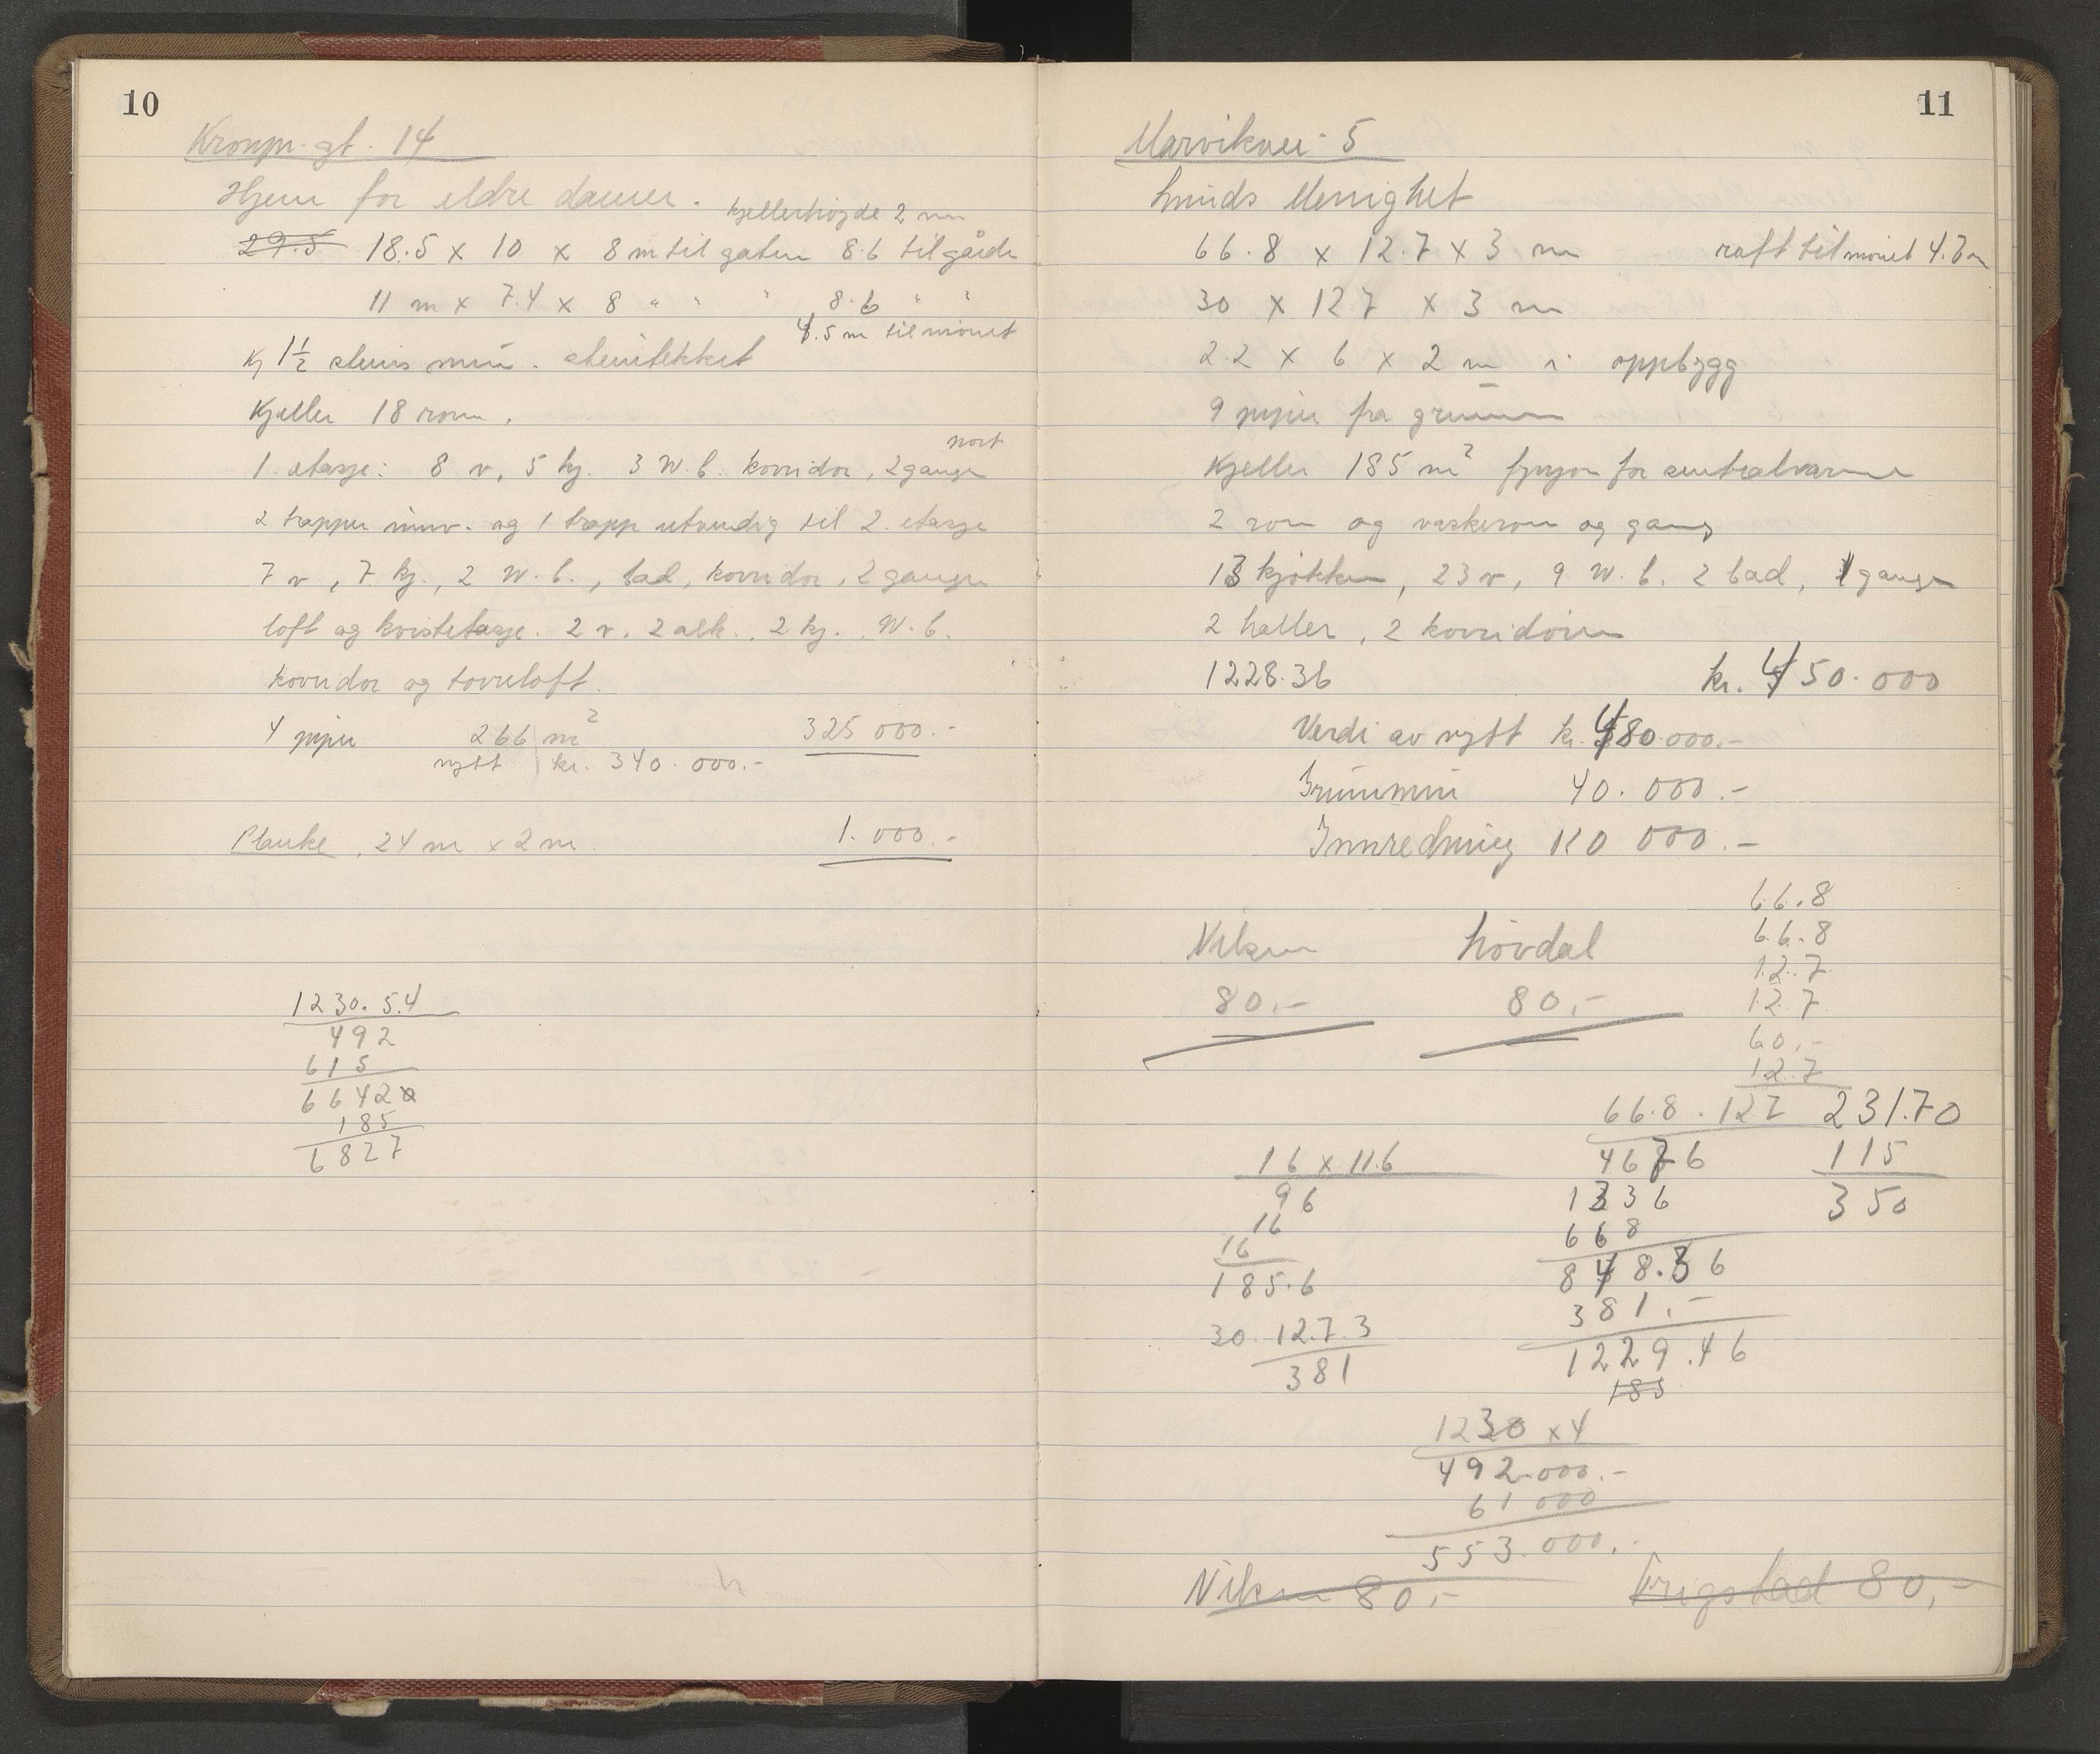 10
Kronpr. gt. 14
Hjem for eldre damer.
kjellerhøyde 2 m
29.5 18.5 x 10 x 8 m til gaten 8.6 til gårde
11 m x 7.4 x 8 " " " 8.6 " "
4.5 m til mønet
Kj 1½ steins mur. steintekket
Kjeller 18 rom.
1. etasje: 8 v, 5 kj. 3 W.C. korridor, 2 ganger
port
2 trapper innv. og 1 trapp utvendig til 2. etasje
7 v, 7 kj., 2 W.C., bad, korridor, 2 ganger
loft og kvistetasje. 2 v. 2 alk., 2 kj., W.C.
korridor og tørreloft.
4 piper 266 m² 325 000.-
nytt kr. 340.000.-
Planke. 24 m x 2 m. 1.000.-
1230.54
492
615
66420
185
6827
11
Marvikvei 5
Lunds Menighet
66.8 x 12.7 x 3 m raft til mønet 4.7 m
30 x 12.7 x 3 m
2.2 x 6 x 2 m i oppbygg
9 piper fra grunnen
Kjeller 185 m² fyrrom for sentralvarme
2 rom og vaskerom og gang
13 kjøkken, 23 v, 9 W.C. 2 bad, 1 ganger
2 haller, 2 korridorer
1228.36 kr. 450.000
Verdi av nytt kr. 480.000.-
Grunnmur 40.000.-
Innredning 120 000.-
66.8
66.8
12.7
12.7
60.-
12.7
231.70
115
350
Nilsen Løvdal
80.- 80.-
66.8 . 127
4676
1336
668
848.36
381.-
1229.46
185
16 x 11.6
96
16
16
185.6
30. 12.7.3
381
1230 x 4
492.000.-
61 000
553.000.-
Nilsen 80.- Trigstad 80,-